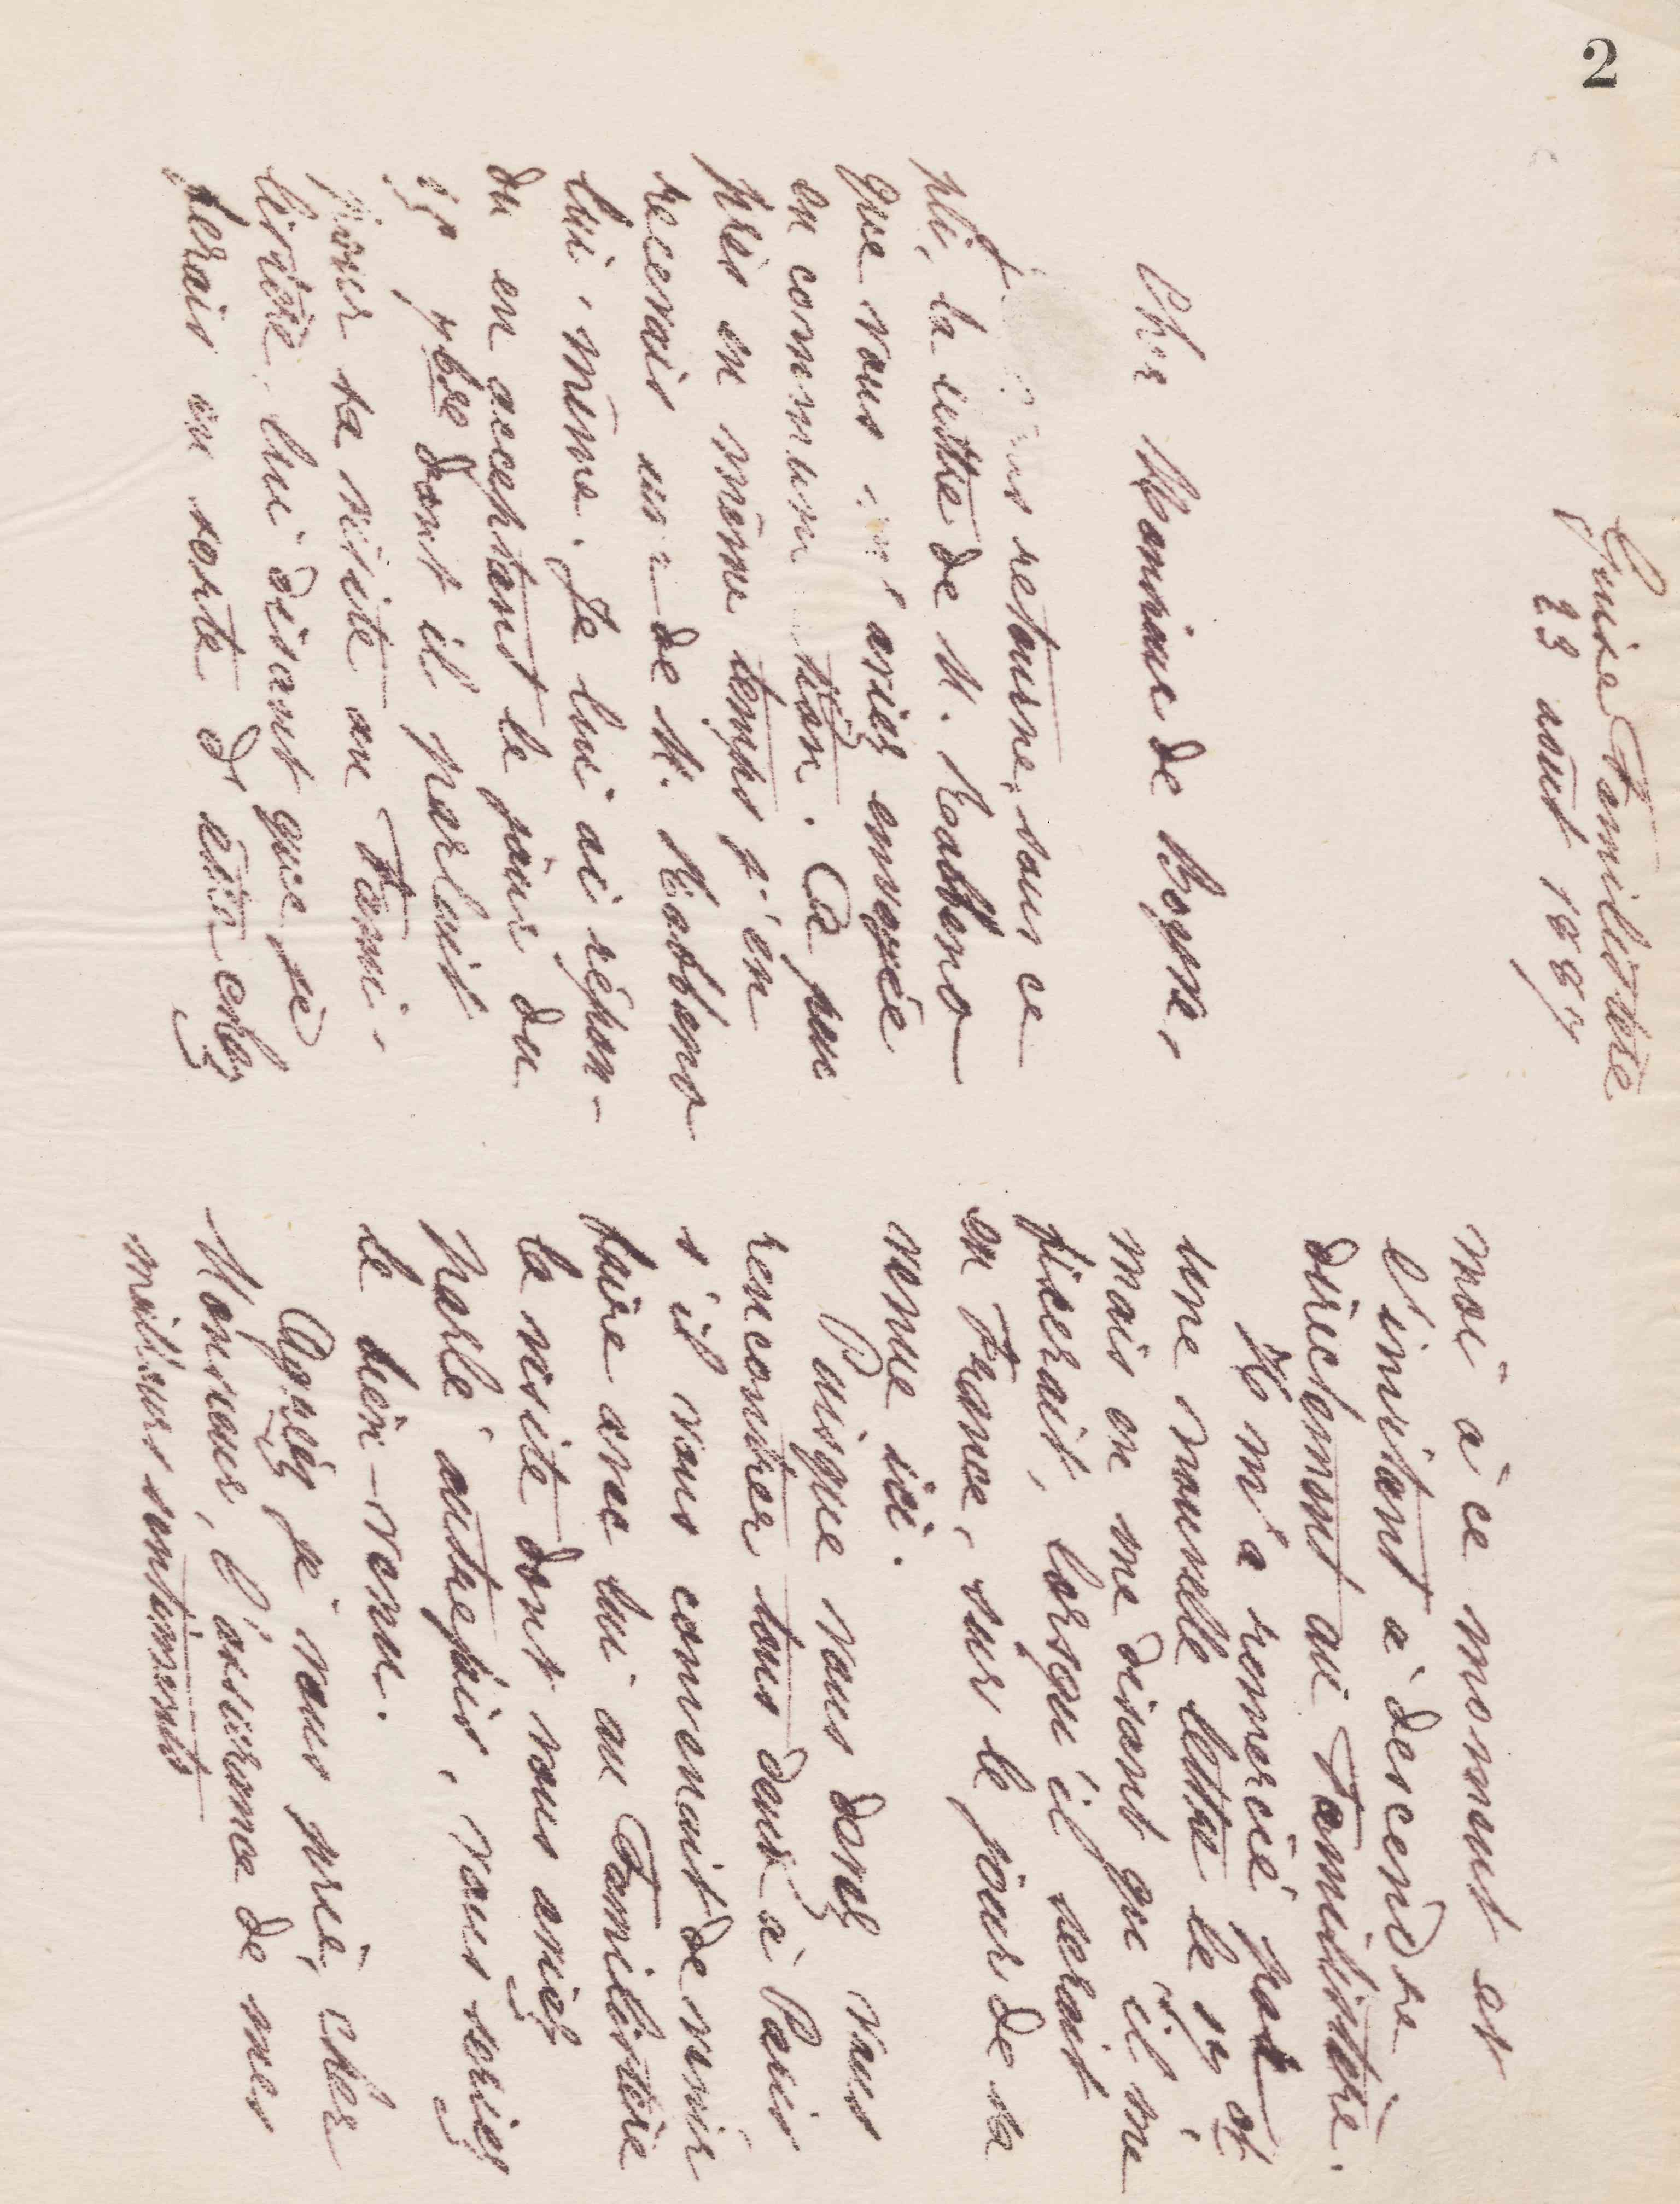 2
Guise Familistère
23 août 1887
Cher Monsieur de Boyve,
retourne, sous ce
pli, la lettre de M. Rabbeno
que vous m'aviez envoyée
en communication. À peu
près en même temps j'en
recevais une de M. Rabbeno
lui-même. Je lui ai répon-
du en acceptant le jour du
7bre dont il parlait
pour sa visite au Fami-
listère, lui disant que je
ferais en sorte d'être chez
moi à ce moment et
l'invitant à descendre
directement au Familistère.
Il m'a remercié par
une nouvelle lettre le 17 ct
mais en me disant qu'il me
fixerait, lorsqu'il serait
en France, sur le jour de sa
venue ici.
Puisque vous devez vous
rencontrer tous deux à Paris
s'il vous convenait de venir
faire avec lui au Familistère
la visite dont vous aviez
parlé autrefois, vous seriez
le bien-venu.
Agréez je vous prie, cher
Monsieur, l'assurance de mes
meilleurs sentiments